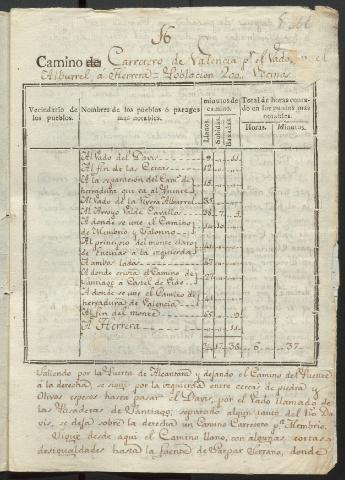 16
Camino de Carretero de Valencia pr. el Vado
Alburrel a Herrera = Poblacion 200 Vecinos
Vecindario de los pueblos.
Nombres de los pueblos ó parages mas notables.
minutos de camino.
Llanos.
Subidas.
Bajadas.
Total de horas contado en los puntos mas notables.
Horas.
Minutos.
Al Vado del Davis
Al fin de las Cercas
A la separacion del Camo. de
herradura que va al Puente
Al Vado de la Rivera Alburrel
Al Arroyo Val de Cavallos
A donde se une el Camino
de Membrio y Salorino
Al principio del monte claro
de Encinas a la izquierda
A ambos lados
A donde el Camino de
Santiago a Castel de Vide
A donde se une el Camino de
herradura de Valencia
Al fin del monte
A Herrera
6 37
Saliendo por la Puerta de Alcantara y dejando el Camino del Puente
a la derecha, se sigue por la izquierda entre cercas de piedra y
Olivos espesos hasta pasar el Davis, por el Vado llamado de
las Pasaderas de Santiago; separado algun tanto del Rio Da-
vis, se deja sobre la derecha un Camino Carretero pa. Membrio.
Sigue desde aqui el Camino llano, con algunas cortas
desigualdades hasta la fuente de Gaspar Serrano, donde